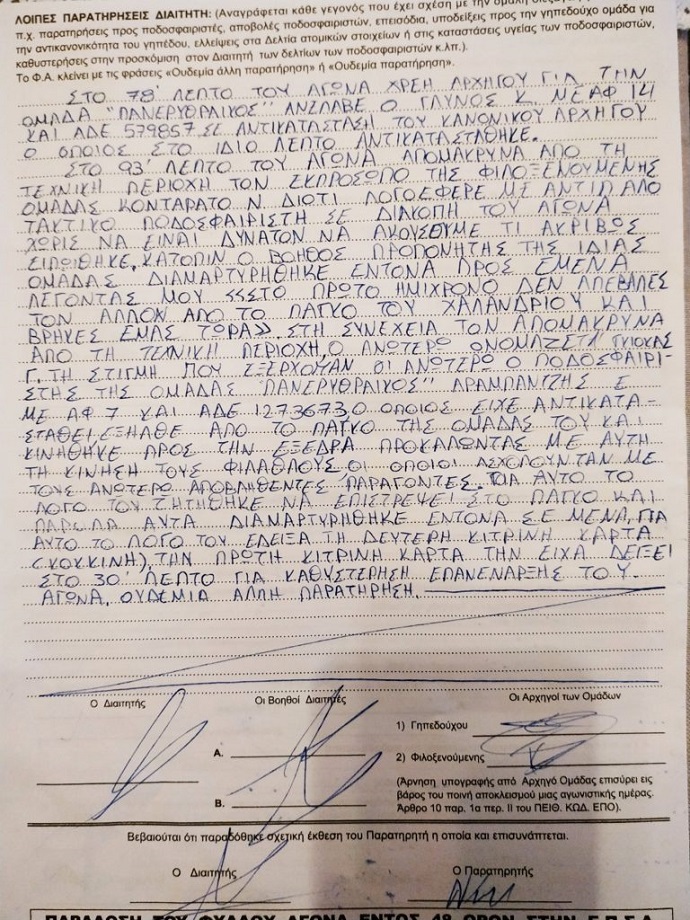 ΛΟΙΠΕΣ ΠΑΡΑΤΗΡΗΣΕΙΣ ΔΙΑΙΤΗΤΗ: (Αναγράφεται κάθε γεγονός που έχει σχέση με την ομαλή
π.χ. παρατηρήσεις προς ποδοσφαιριστές, αποβολές ποδοσφαιριστών, επεισόδια, υποδείξεις προς την γηπεδούχο ομάδα για
την αντικανονικότητα του γηπέδου, ελλείψεις στα Δελτία ατομικών στοιχείων ή στις καταστάσεις υγείας των ποδοσφαιριστών,
καθυστερήσεις στην προσκόμιση στον Διαιτητή των δελτίων των ποδοσφαιριστών κ.λπ.).
Το Φ.Α. κλείνει με τις φράσεις «Ουδεμία άλλη παρατήρηση» ή «Ουδεμία παρατήρηση».
ΣΤΟ 78' ΛΕΠΤΟ ΤΟΥ ΑΓΩΝΑ ΧΡΕΗ ΑΡΧΗΓΟΥ ΓΙΑ ΤΗΝ
ΟΜΑΔΑ "ΠΑΝΕΡΥΘΡΑΙΚΟΣ" ΑΝΕΛΑΒΕ Ο ΓΛΥΝΟΣ Κ. ΜΕ ΑΦ 14
ΚΑΙ ΑΔΕ 579857 ΣΕ ΑΝΤΙΚΑΤΑΣΤΑΣΗ ΤΟΥ ΚΑΝΟΝΙΚΟΥ ΑΡΧΗΓΟΥ
Ο ΟΠΟΙΟΣ ΣΤΟ ΙΔΙΟ ΛΕΠΤΟ ΑΝΤΙΚΑΤΑΣΤΑΘΗΚΕ.
ΣΤΟ 93' ΛΕΠΤΟ ΤΟΥ ΑΓΩΝΑ ΑΠΟΜΑΚΡΥΝΑ ΑΠΟ ΤΗ
ΤΕΧΝΙΚΗ ΠΕΡΙΟΧΗ ΤΟΝ ΕΚΠΡΟΣΩΠΟ ΤΗΣ ΦΙΛΟΞΕΝΟΥΜΕΝΗΣ
ΟΜΑΔΑΣ ΚΟΝΤΑΡΑΤΟ Ν. ΔΙΟΤΙ ΛΟΓΟΕΦΕΡΕ ΜΕ ΑΝΤΙΠΑΛΟ
ΤΑΚΤΙΚΟ ΠΟΔΟΣΦΑΙΡΙΣΤΗ ΣΕ ΔΙΑΚΟΠΗ ΤΟΥ ΑΓΩΝΑ
ΧΩΡΙΣ ΝΑ ΕΙΝΑΙ ΔΥΝΑΤΟΝ ΝΑ ΑΚΟΥΣΟΥΜΕ ΤΙ ΑΚΡΙΒΩΣ
ΕΙΠΩΘΗΚΕ. ΚΑΤΟΠΙΝ Ο ΒΟΗΘΟΣ ΠΡΟΠΟΝΗΤΗΣ ΤΗΣ ΙΔΙΑΣ
ΟΜΑΔΑΣ ΔΙΑΜΑΡΤΥΡΗΘΗΚΕ ΕΝΤΟΝΑ ΠΡΟΣ ΕΜΕΝΑ
ΛΕΓΟΝΤΑΣ ΜΟΥ <<ΣΤΟ ΠΡΩΤΟ ΗΜΙΧΡΟΝΟ ΔΕΝ ΑΠΕΒΑΛΕΣ
ΤΟΝ ΑΛΛΟΝ ΑΠΟ ΤΟ ΠΑΓΚΟ ΤΟΥ ΧΑΛΑΝΔΡΙΟΥ ΚΑΙ
ΒΡΗΚΕΣ ΕΜΑΣ ΤΩΡΑ>>. ΣΤΗ ΣΥΝΕΧΕΙΑ ΤΟΝ ΑΠΟΜΑΚΡΥΝΑ
ΑΠΟ ΤΗ ΤΕΧΝΙΚΗ ΠΕΡΙΟΧΗ, Ο ΑΝΩΤΕΡΟ ΟΝΟΜΑΖΕΤΑΙ ΓΚΙΟΚΑΣ
Γ. ΤΗ ΣΤΙΓΜΗ ΠΟΥ ΕΞΕΡΧΟΝΤΑΝ ΟΙ ΑΝΩΤΕΡΟ Ο ΠΟΔΟΣΦΑΙΡΙ-
ΣΤΗΣ ΤΗΣ ΟΜΑΔΑΣ "ΠΑΝΕΡΥΘΡΑΙΚΟΣ" ΑΡΑΜΠΑΝΤΖΗΣ Ε
ΜΕ ΑΦ. 7 ΚΑΙ ΑΔΕ 1273673, Ο ΟΠΟΙΟΣ ΕΙΧΕ ΑΝΤΙΚΑΤΑ-
ΣΤΑΘΕΙ, ΕΞΗΛΘΕ ΑΠΟ ΤΟ ΠΑΓΚΟ ΤΗΣ ΟΜΑΔΑΣ ΤΟΥ ΚΑΙ
ΚΙΝΗΘΗΚΕ ΠΡΟΣ ΤΗΝ ΕΞΕΔΡΑ ΠΡΟΚΑΛΩΝΤΑΣ ΜΕ ΑΥΤΗ
ΤΗ ΚΙΝΗΣΗ ΤΟΥΣ ΦΙΛΑΘΛΟΥΣ ΟΙ ΟΠΟΙΟΙ ΑΣΧΟΛΟΥΝΤΑΝ ΜΕ
ΤΟΥΣ ΑΝΩΤΕΡΟ ΑΠΟΒΛΗΘΕΝΤΕΣ ΠΑΡΑΓΟΝΤΕΣ. ΓΙΑ ΑΥΤΟ ΤΟ
ΛΟΓΟ ΤΟΥ ΖΗΤΗΘΗΚΕ ΝΑ ΕΠΙΣΤΡΕΨΕΙ ΣΤΟ ΠΑΓΚΟ ΚΑΙ
ΠΑΡΟΛΑ ΑΥΤΑ ΔΙΑΜΑΡΤΥΡΗΘΗΚΕ ΕΝΤΟΝΑ ΣΕ ΜΕΝΑ, ΓΙΑ
ΑΥΤΟ ΤΟ ΛΟΓΟ ΤΟΥ ΕΔΕΙΞΑ ΤΗ ΔΕΥΤΕΡΗ ΚΙΤΡΙΝΗ ΚΑΡΤΑ
(ΚΟΚΚΙΝΗ), ΤΗΝ ΠΡΩΤΗ ΚΙΤΡΙΝΗ ΚΑΡΤΑ ΤΗΝ ΕΙΧΑ ΔΕΙΞΕΙ
ΣΤΟ 30' ΛΕΠΤΟ ΓΙΑ ΚΑΘΥΣΤΕΡΗΣΗ ΕΠΑΝΕΝΑΡΞΗΣ ΤΟΥ
ΑΓΩΝΑ. ΟΥΔΕΜΙΑ ΑΛΛΗ ΠΑΡΑΤΗΡΗΣΗ.
Ο Διαιτητής Οι Βοηθοί Διαιτητές Οι Αρχηγοί των Ομάδων
1) Γηπεδούχου
Α. 2) Φιλοξενούμενης
(Άρνηση υπογραφής από Αρχηγό Ομάδας επισύρει εις
βάρος του ποινή αποκλεισμού μιας αγωνιστικής ημέρας.
Β. Άρθρο 10 παρ. 1α περ. ΙΙ του ΠΕΙΘ. ΚΩΔ. ΕΠΟ).
Βεβαιούται ότι παραδόθηκε σχετική έκθεση του Παρατηρητή η οποία και επισυνάπτεται.
Ο Διαιτητής Ο Παρατηρητής
ΠΑΡΑΔΟΣΗ ΤΟΥ ΦΥΛΛΟΥ ΑΓΩΝΑ ΕΝΤΟΣ 48 ΩΡΩΝ ΣΤΗΝ Ε.Π.Σ.Α.